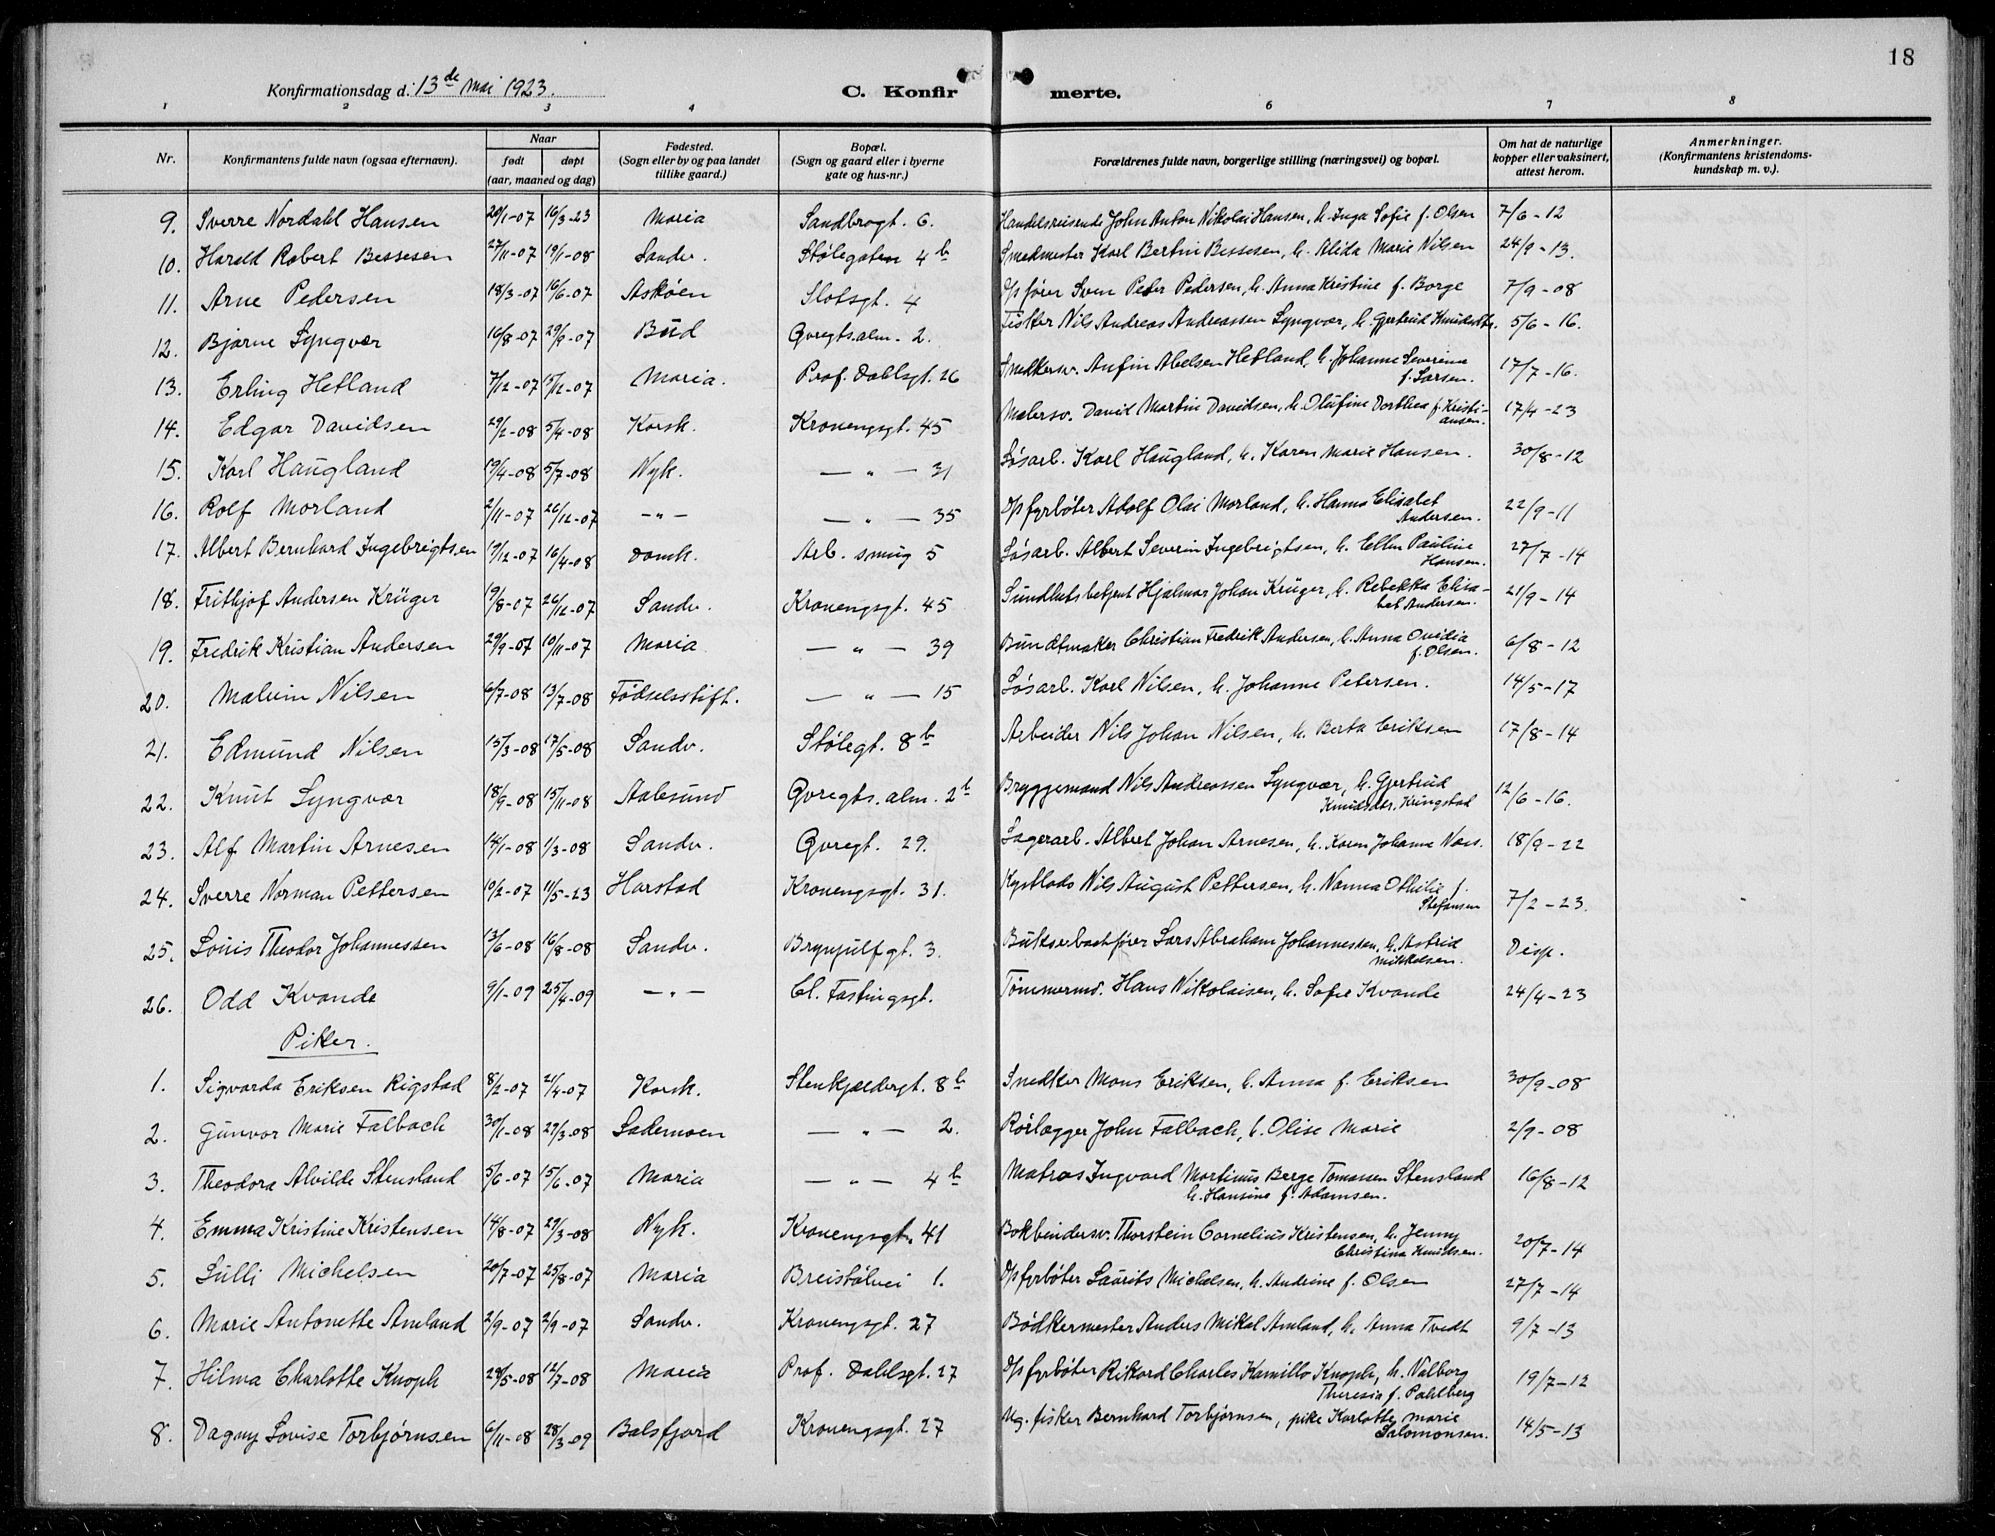 18
Konfirmationsdag d. 13de mai 1923.
C. Konfirmerte.
1 2 3 4 6 7 8
Nr. Konfirmantens fulde navn (ogsaa efternavn). Naar født døpt (aar, maaned og dag) Fødested. (Sogn eller by og paa landet tillike gaard.) Bopæl. (Sogn og gaard eller i byerne gate og hus-nr.) Forældrenes fulde navn, borgerlige stilling (næringsvei) og bopæl. Om hat de naturlige kopper eller vaksinert, attest herom. Anmerkninger. (Konfirmantens kristendoms-kundskap m. v.).
9. Sverre Nordahl Hansen 20/1-07 16/3-23 Maria Sandbrogt. 6. Handelsreisende John Anton Nikolai Hansen, h. Inga Sofie f. Olsen 7/6-12
10. Harald Robert Bessesen 27/11-07 19/1-08 Sandv. Stølegaten 4b Smedmester Karl Bertin Bessesen, h. Alida Marie Nilsen 24/9-13.
11. Arne Pedersen 18/3-07 16/6-07 Askøen Slotsgt. 4 Opfører Sven Peder Pedersen, h. Anna Kristine f. Borge 7/9-08
12. Bjarne Lyngvær 16/8-07 29/9-07 Bud Qvregtsalm. 2. Fisker Nils Andreas Andreassen Lyngvær, h. Gjertrud Knudsdtr. 5/6-16.
13. Erling Hetland 7/12-07 15/12-07 Maria. Prof. Dahlsgt. 26 Snedkersv. Anfin Abelsen Hetland, h. Johanne Severina f. Larsen. 17/7-16.
14. Edgar Davidsen 29/2-08 5/4-08 Korsk. Kroneng­sgt. 45 Malersv. David Martin Davidsen, h. Olufine Dorthea f. Kristiansen. 17/4-23
15. Karl Haugland 19/4-08 5/7-08 Nyk. — " — 31 Løsarb. Karl Haugland, h. Karen Marie Hansen. 30/8-12
16. Rolf Morland 2/11-07 26/12-07 - " - — " — 35 Opfyrbøter Adolf Olai Morland, h. Hanna Elisabet Andersen. 22/9-11
17. Albert Bernhard Ingebrigtsen 19/12-07 16/4-08 Domk. Arb. smug 5 Løsarb. Albert Severin Ingebrigtsen, h. Ellen Pauline Hansen. 27/7-14
18. Frithjof Andersen Krüger 19/8-07 26/12-07 Sandv. Kronengsgt. 45 Sundhetsbetjent Hjalmar Johan Krüger, h. Rebekka Elisabet Andersen. 21/9-14
19. Fredrik Kristian Andersen 29/9-07 10/11-07 Maria — " — 39 Bundtmaker Christian Fredrik Andersen, h. Anna Ovidia f. Olsen. 6/8-12
20. Malvin Nilsen 6/7-08 13/7-08 Fødselsstift. — " — 15 Løsarb. Karl Nilsen, h. Johanne Petersen. 14/5-17
21. Edmund Nilsen 15/3-08 17/5-08 Sandv. Stølegt. 8b Arbeider Nils Johan Nilsen, h. Berta Eriksen 17/8-14
22. Knut Lyngvær 18/9-08 15/11-08 Aalesund Qvregts.alm. 2b Bryggemand Nils Andreassen Lyngvær, h. Gjertrud Knudsdtr. Kringstad 12/6-16.
23. Alf Martin Arnesen 14/1-08 1/3-08 Sandv. Qvregt. 29. Lagerarb. Albert Johan Arnesen, h. Karen Johanne Næss. 18/9-22
24. Sverre Norman Pettersen 10/2-07 11/5-23 Harstad Kronengsgt. 31. Kystlods Nils August Pettersen, h. Nanna Othilie f. Stefansen 7/2-23.
25. Louis Theodor Johannessen 13/6-08 16/8-08 Sandv. Brynjulfgt. 3. Bukserbaatfører Lars Abraham Johannessen, h. Astrid Mikkelsen. Disp.
26. Odd Kvande 9/1-09 25/4-09 - " - Cl. Fastingsgt. Tømmermd. Hans Nikolaisen, h. Sofie Kvande 24/4-23
Piker.
1. Sigvarda Eriksen Rigstad 8/2-07 21/4-07 Korsk. Stenkjeldergt. 8b Snedker Mons Eriksen, h. Anna f. Eriksen 30/9-08
2. Gunvor Marie Falbach 30/1-08 29/3-08 Lademoen — " — 2. Rørlægger John Falbach, h. Olise Marie 2/9-08
3. Theodora Alvilde Stensland 5/6-07 15/6-07 Maria — " — 4b Matros Ingvard Martinus Berge Tomassen Stensland h. Hansine f. Adamsen. 16/8-12
4. Emma Kristine Kristensen 14/8-07 29/3-08 Nyk. Kronengsgt. 41 Bokbindersv. Thorstein Cornelius Kristensen, h. Jenny Christina Knudsen. 20/7-14
5. Lulli Michelsen 20/7-07 25/8-07 Maria Breistølvei 1. Opfyrbøter Laurits Michelsen, h. Andrine f. Olsen 27/7-14
6. Marie Antonette Amland 2/9-07 2/9-07 Sandv. Kronengsgt. 27 Bødkermester Anders Mikal Amland, h. Anna Tvedt 9/7-13
7. Hilma Charlotte Knoph 29/5-08 12/7-08 Maria Prof. Dahlsgt. 27 Opfyrbøter Rikard Charles Kamillo Knoph, h. Valborg Theresia f. Pahlberg 19/7-12
8. Dagny Lovise Torbjørnsen 6/11-08 28/3-09 Balsfjord Kronengsgt. 27 Ug. fisker Bernhard Torbjørnsen, pike Karlotte Marie Salomonsen. 14/5-13